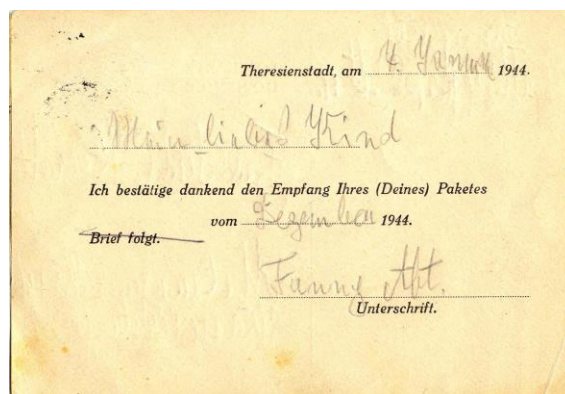 Theresienstadt, am 4. Januar 1944.
Mein liebes Kind
Ich bestätige dankend den Empfang Ihres (Deines) Paketes
vom Dezember 1944.
Brief folgt.
Fanny Apt.
Unterschrift.